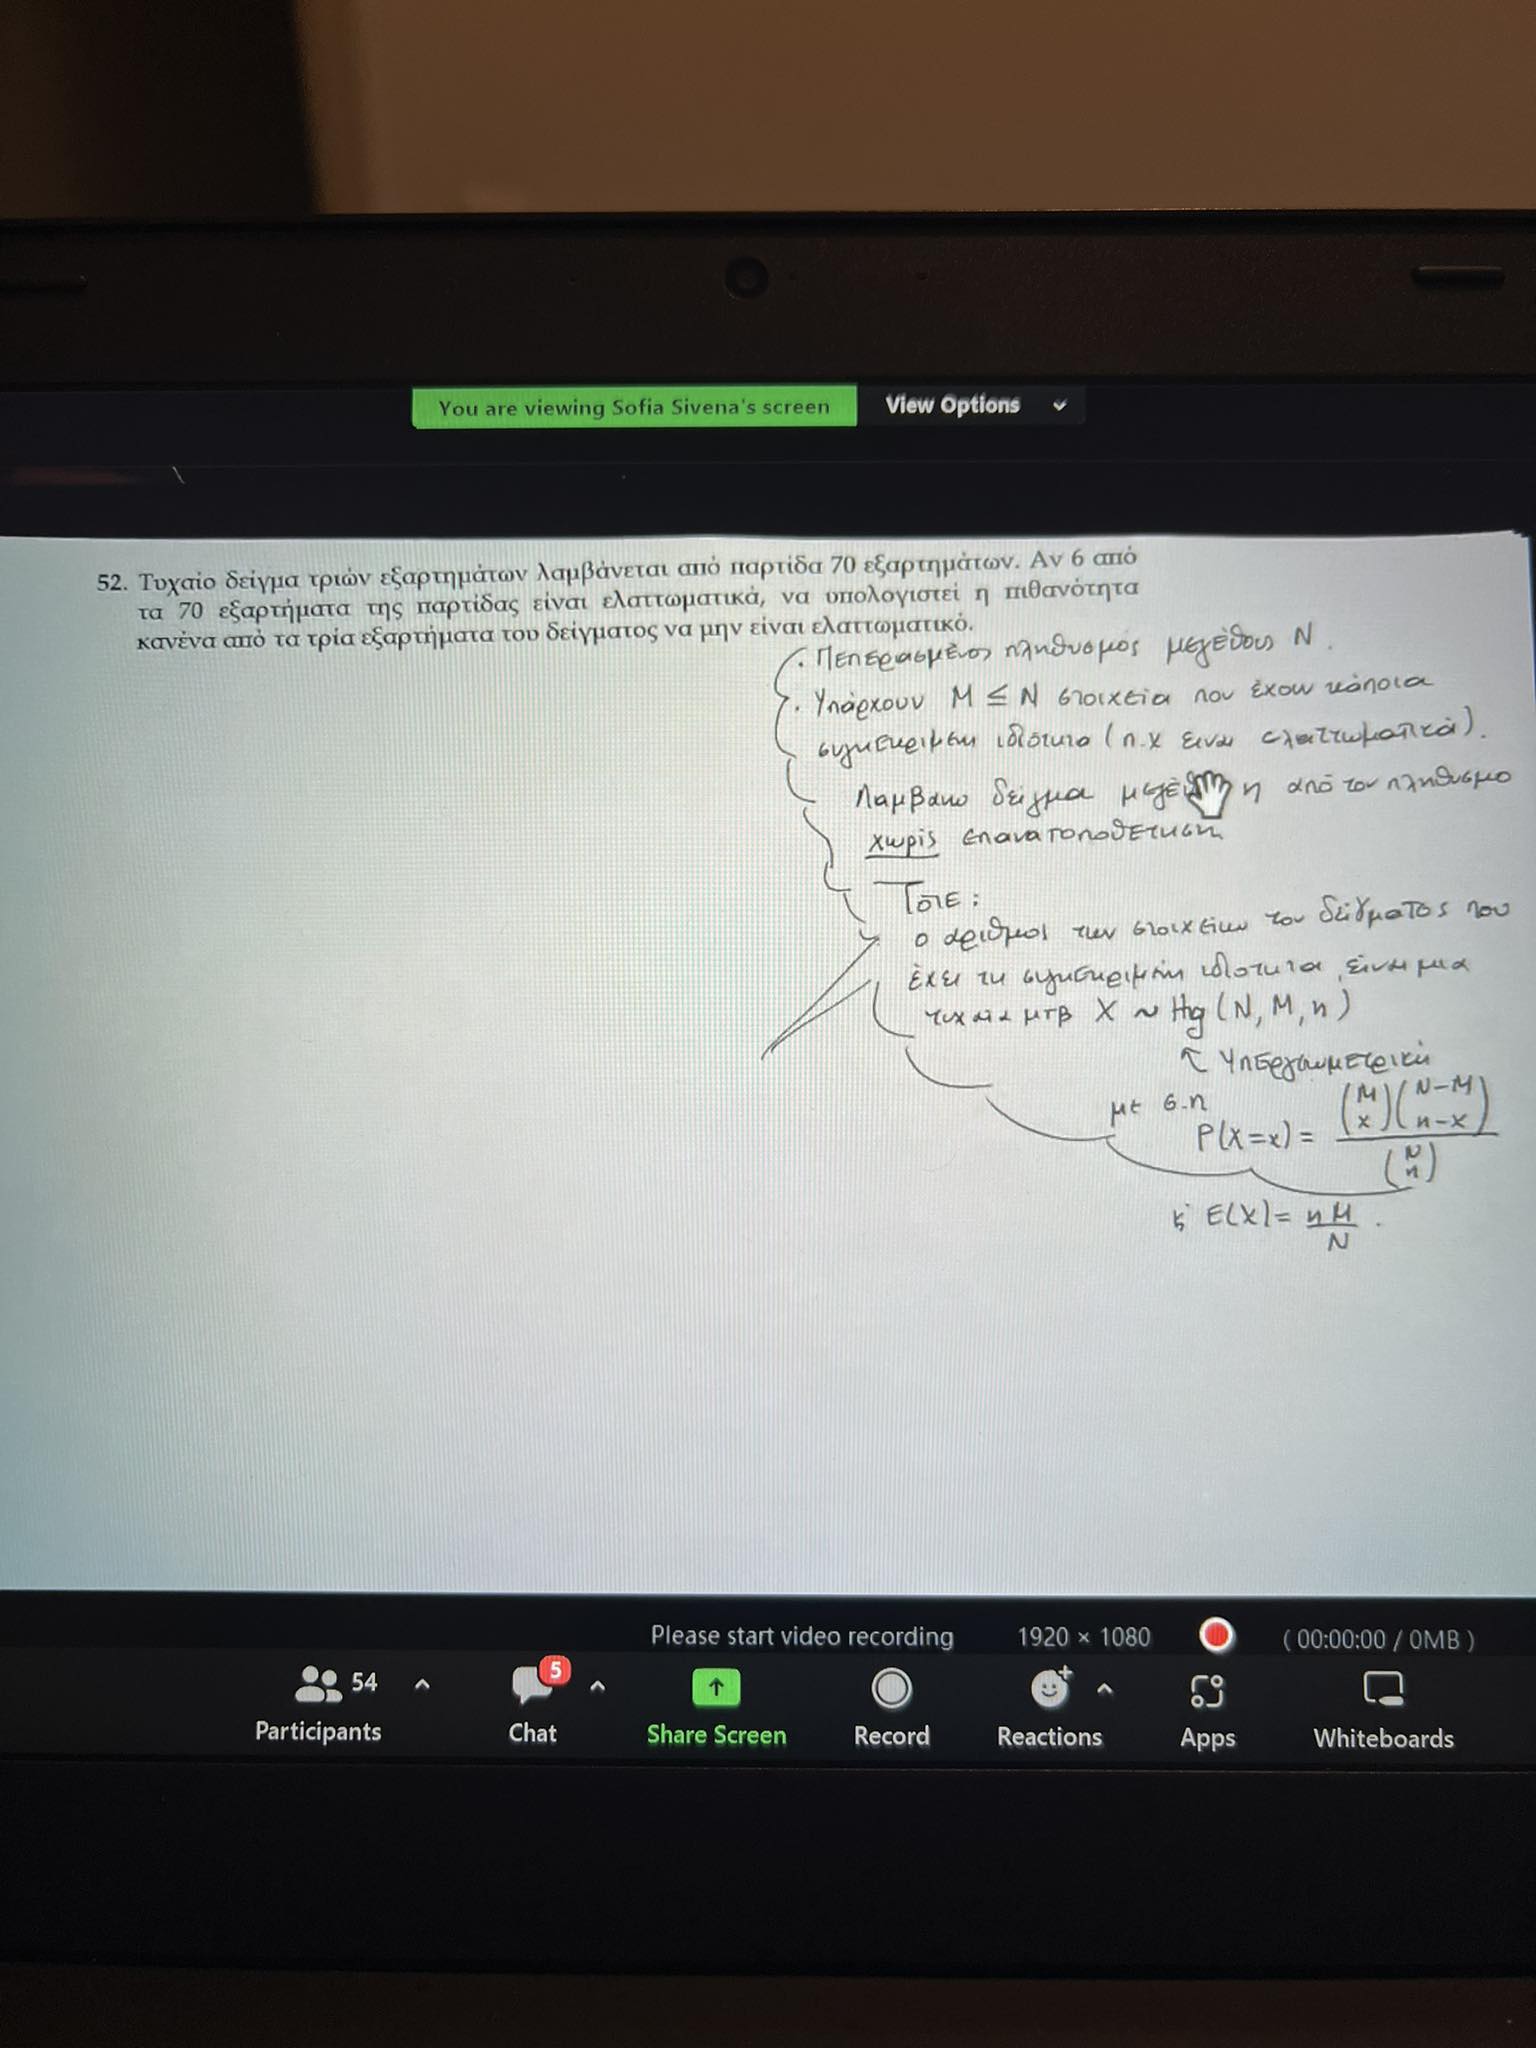 You are viewing Sofia Sivena's screen View Options
52. Τυχαίο δείγμα τριών εξαρτημάτων λαμβάνεται από παρτίδα 70 εξαρτημάτων. Αν 6 από
τα 70 εξαρτήματα της παρτίδας είναι ελαττωματικά, να υπολογιστεί η πιθανότητα
κανένα από τα τρία εξαρτήματα του δείγματος να μην είναι ελαττωματικό.
. Πεπερασμένος πληθυσμός μεγέθους N.
. Υπάρχουν M ≤ N στοιχεία που έχουν κάποια
συγκεκριμένη ιδιότητα (π.χ είναι ελαττωματικά).
Λαμβάνω δείγμα n από τον πληθυσμό
χωρίς επανατοποθέτηση
Τότε:
ο αριθμός των στοιχείων του δείγματος που
έχει τη συγκεκριμένη ιδιότητα είναι μια
τυχαία μτβ X ~ Hg(N, M, n)
↖ Υπεργεωμετρική
με σ.π
P(X=x) = (M x)(N-M n-x) / (N n)
E(X) = nM / N .
Please start video recording 1920 × 1080 ( 00:00:00 / 0MB )
54 5
Participants Chat Share Screen Record Reactions Apps Whiteboards